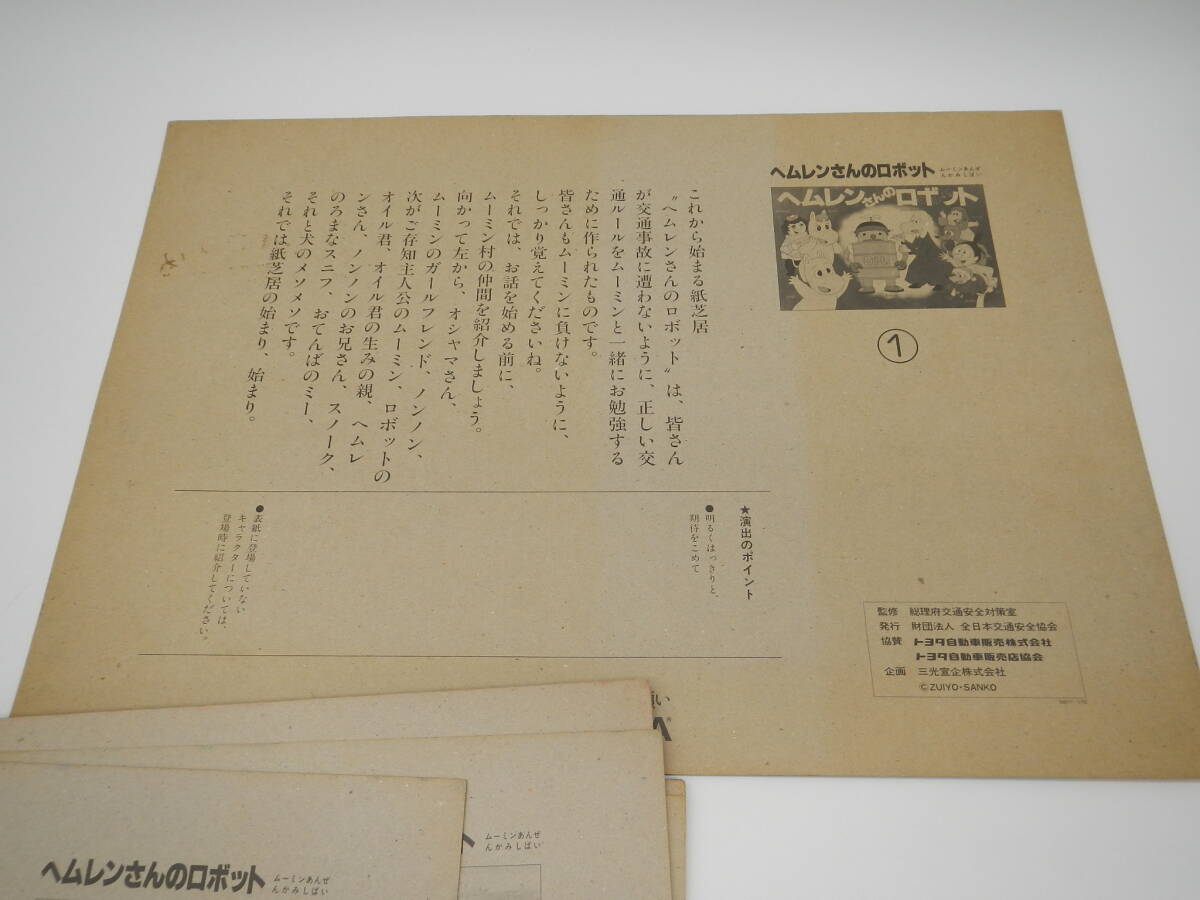 ヘムレンさんのロボット
ムーミンあんぜ
んかみしばい
ヘムレンさんのロボット
①
これから始まる紙芝居
〝ヘムレンさんのロボット〟は、皆さん
が交通事故に遭わないように、正しい交
通ルールをムーミンと一緒にお勉強する
ために作られたものです。
皆さんもムーミンに負けないように、
しっかり覚えてくださいね。
それでは、お話を始める前に、
ムーミン村の仲間を紹介しましょう。
向かって左から、オシャマさん、
ムーミンのガールフレンド、ノンノン、
次がご存知主人公のムーミン、ロボットの
オイル君、オイル君の生みの親、ヘムレ
ンさん、ノンノンのお兄さん、スノーク、
のろまなスニフ、おてんばのミー、
それと犬のメソメソです。
それでは紙芝居の始まり、始まり。
★演出のポイント
●明るくはっきりと、
期待をこめて
●表紙に登場していない
キャラクターについては、
登場時に紹介してください。
監修 総理府交通安全対策室
発行 財団法人 全日本交通安全協会
協賛 トヨタ自動車販売株式会社
トヨタ自動車販売店協会
企画 三光宣企株式会社
©ZUIYO・SANKO
い
ト
ムーミンあんぜ
んかみしばい
ヘムレンさんのロボット
ムーミンあんぜ
んかみしばい